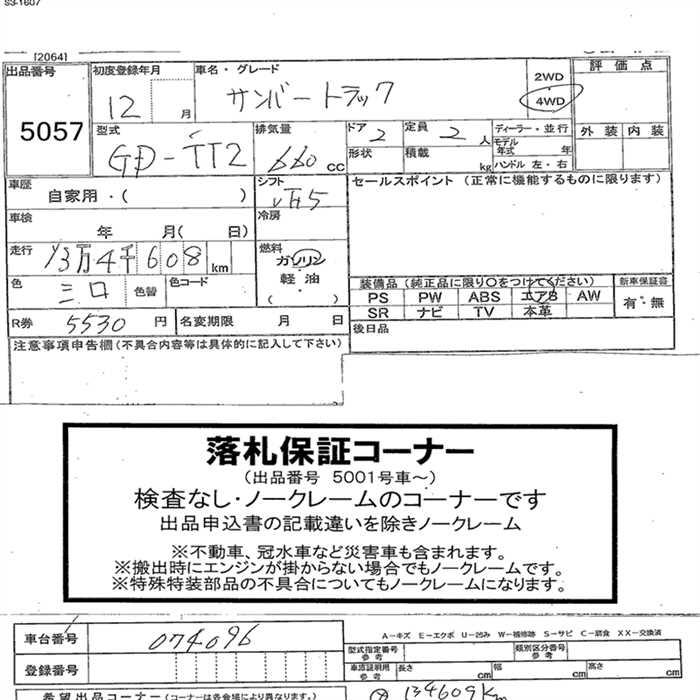 S3-1607
[2064]
出品番号
5057
初度登録年月
12 月
車名・グレード
サンバートラック
2WD
4WD
評価点
外装 内装
型式
GD-TT2
排気量
660 cc
ドア
2
定員
2 人
形状
積載
kg
ディーラー・並行
モデル年式 年
ハンドル 左・右
車歴
自家用・( )
シフト
冷房
セールスポイント (正常に機能するものに限ります)
車検
年 月( 日)
走行
13万4千608 km
燃料
ガソリン
軽・油
( )
色
シロ
色替
色コード
装備品(純正品に限り○をつけてください)
PS PW ABS エアB AW
SR ナビ TV 本革
新車保証書
有・無
R券
5530 円
名変期限 月 日
後日品
注意事項申告欄(不具合内容等は具体的に記入して下さい)
落札保証コーナー
(出品番号 5001号車~)
検査なし・ノークレームのコーナーです
出品申込書の記載違いを除きノークレーム
※不動車、冠水車など災害車も含まれます。
※搬出時にエンジンが掛からない場合でもノークレームです。
※特殊特装部品の不具合についてもノークレームになります。
車台番号
074096
A-キズ E-エクボ U-凹み W-補修跡 S-サビ C-腐食 XX-交換済
型式指定番号
参考
類別区分番号
参考
登録番号
車庫証明用
参考
長さ
cm
幅
cm
高さ
cm
希望出品コーナー(コーナーは各会場により異なります。)
134609Km